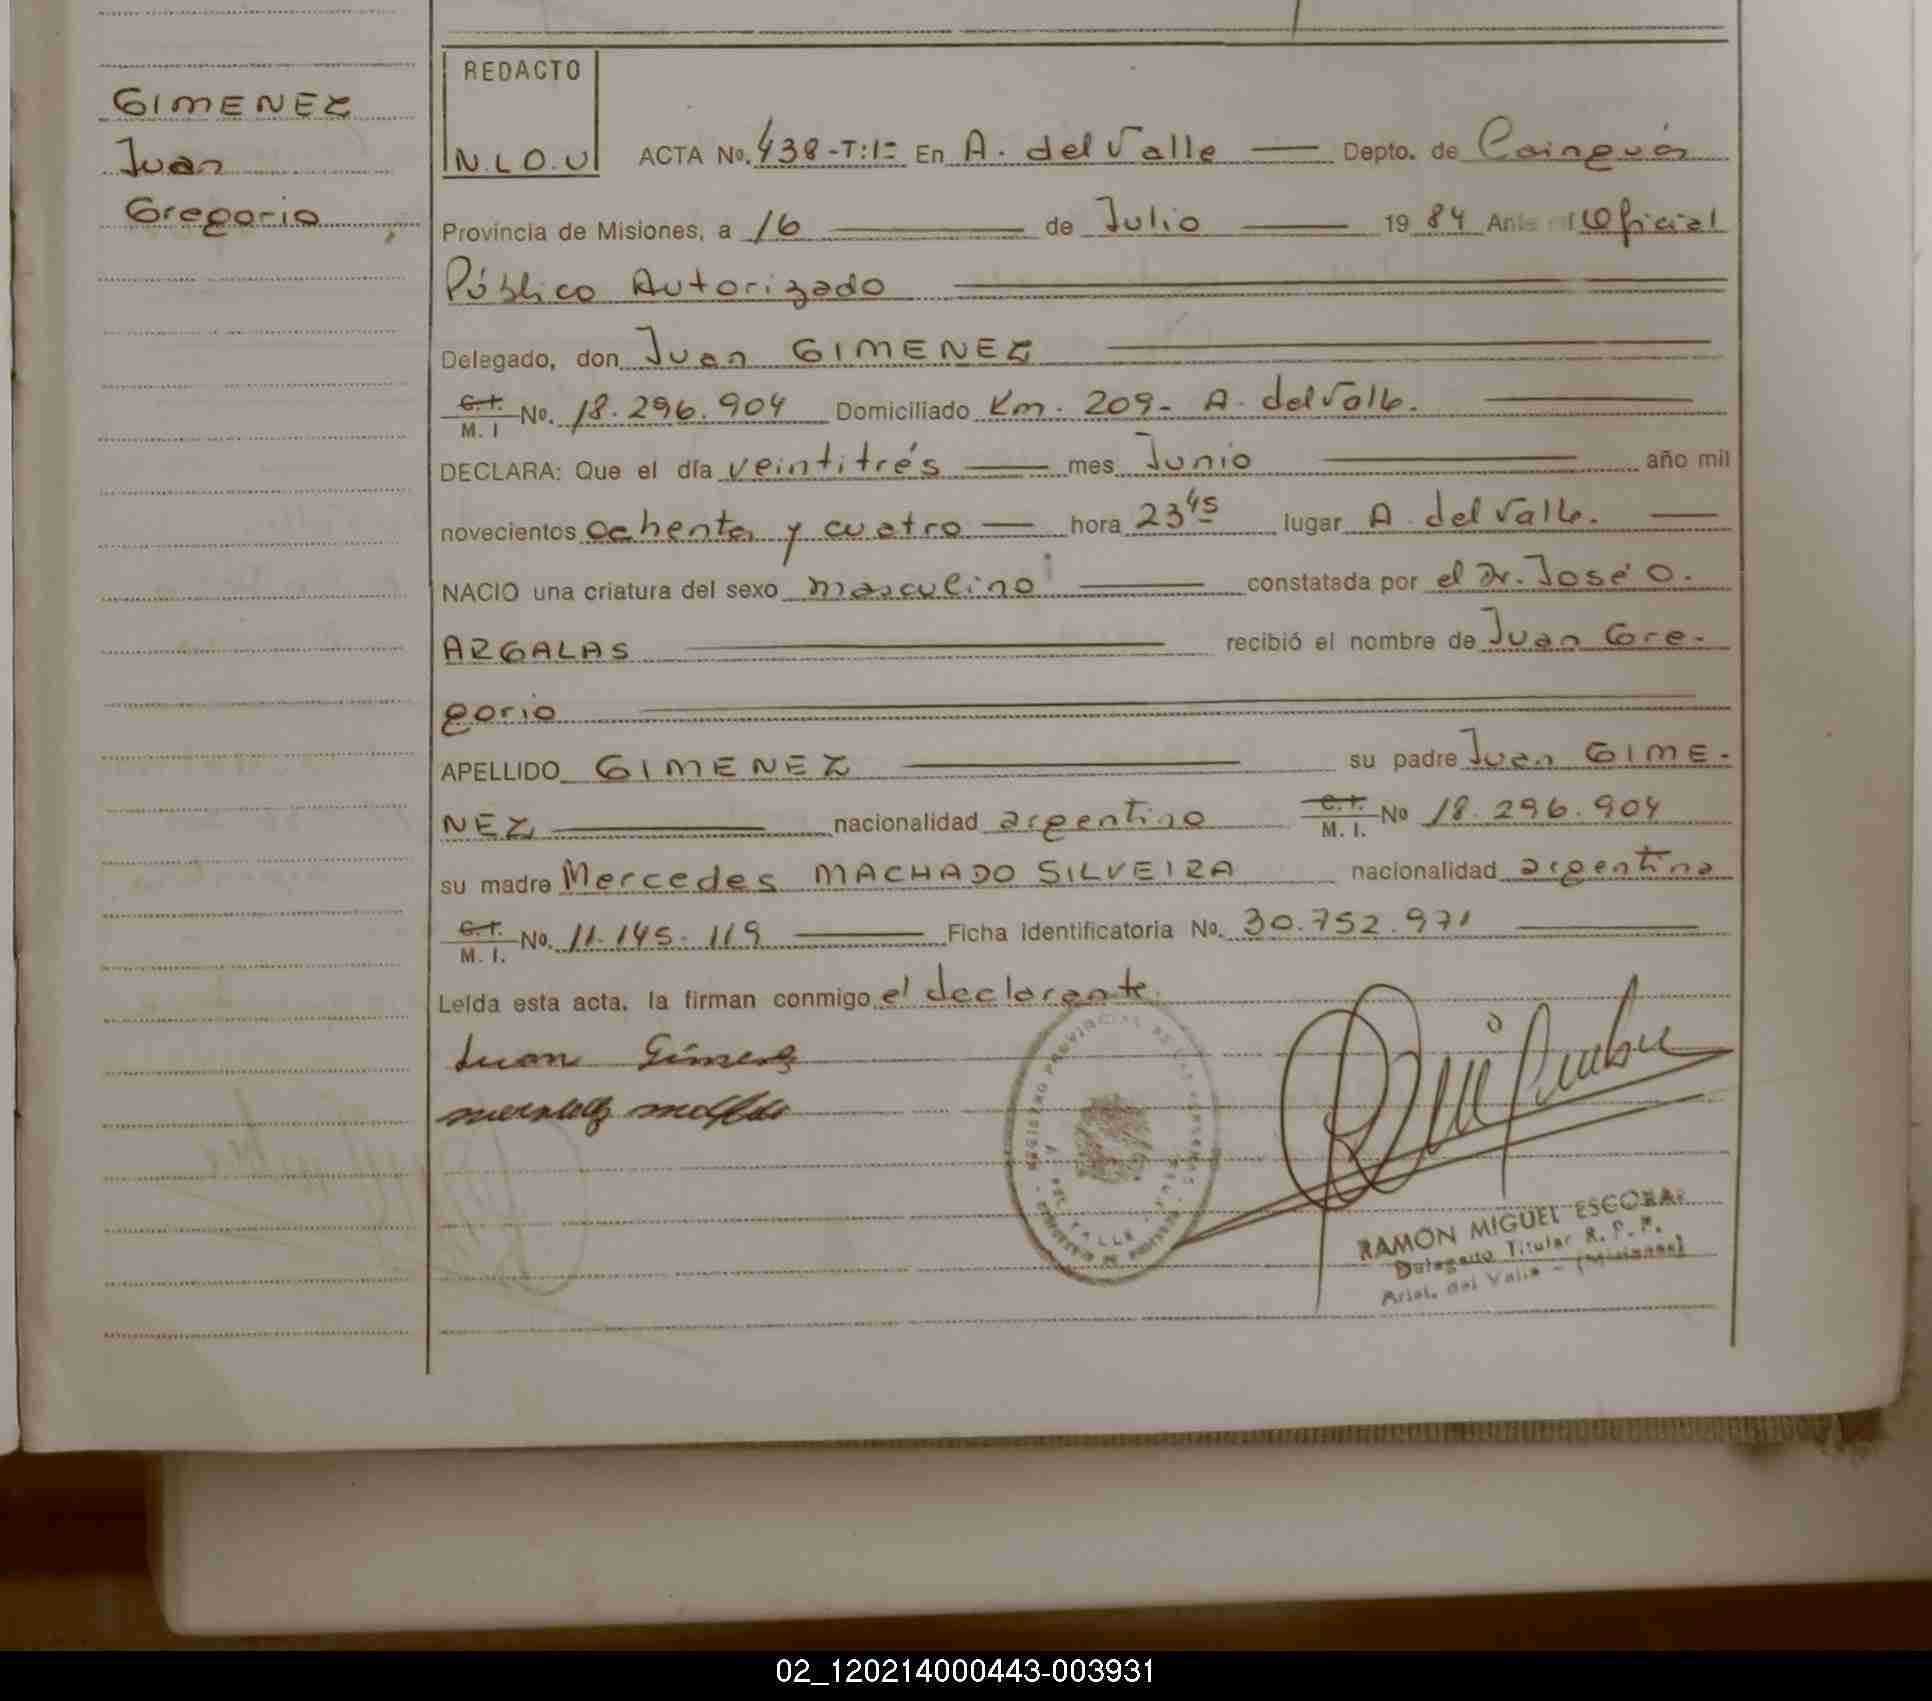 GIMENEZ
Juan
Gregorio
REDACTO
N.L.O.U
ACTA No. 438-T:I= En A. del Valle Depto. de Cainguás
Provincia de Misiones, a 16 de Julio 1984 Ante el Oficial
Público Autorizado
Delegado, don Juan GIMENEZ
C.I. M. I No. 18.296.904 Domiciliado Km. 209- A. del Valle.
DECLARA: Que el día veintitrés mes Junio año mil
novecientos ochenta y cuatro hora 23 45 lugar A. del Valle.
NACIO una criatura del sexo masculino constatada por el Dr. José O.
ARGALAS recibió el nombre de Juan Gre-
gorio
APELLIDO GIMENEZ su padre Juan GIME-
NEZ nacionalidad argentino C.I. M. I. No 18.296.904
su madre Mercedes MACHADO SILVEIRA nacionalidad argentina
C.I. M. I. No. 11.145.119 Ficha identificatoria No. 30.752.971
Leída esta acta, la firman conmigo el declarante.
Juan Gimenez
REGISTRO PROVINCIAL DE LAS PERSONAS
A. DEL VALLE
RAMÓN MIGUEL ESCOBAR
Delegado Titular R. P. P.
Arist. del Valle - (Misiones)
02_120214000443-003931